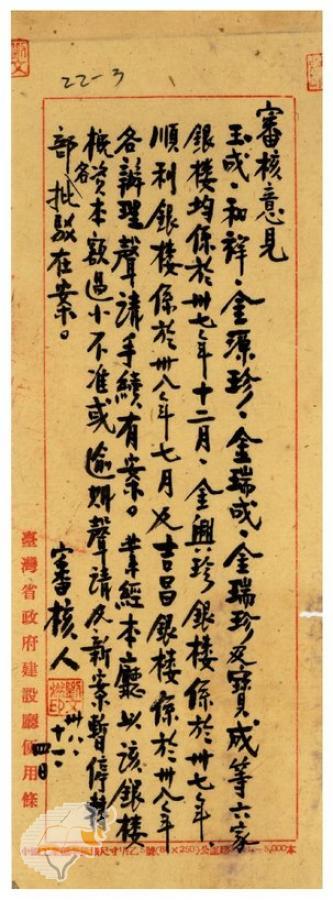 22-3
審核意見
玉成、和祥、金源珍、金瑞成、金瑞珍及寶成等六家
銀楼均係於卅七年十二月、金興珍銀楼係於卅七年
順利銀楼係於卅八年七月及吉昌銀楼係於卅八年
各辦理聲請手續有案。業經本廳以該銀楼
各
概資本額過小不准或逾期聲請及新案暫停辦
部批駁在案。
審核人
卅八、十一、四日
臺灣省政府建設廳便用條